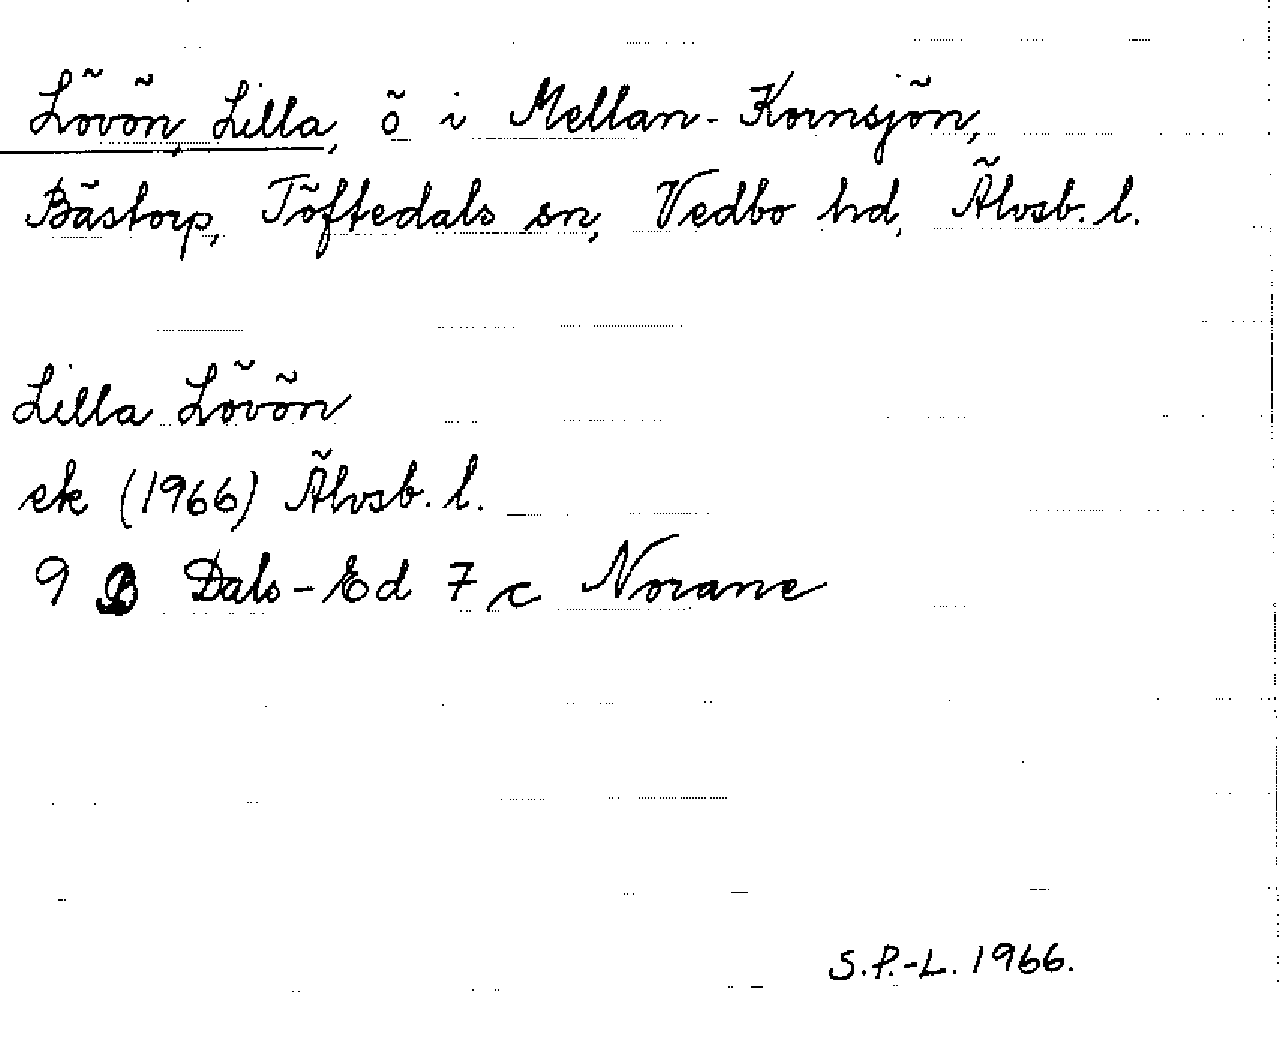 Lövön, Lilla, ö i Mellan-Kornsjön,
Bästorp, Töftedals sn, Vedbo hd, Älvsb. l.
Lilla Lövön
ek (1966) Älvsb. l.
9 B Dals-Ed 7 c Norane
S.P.-L. 1966.